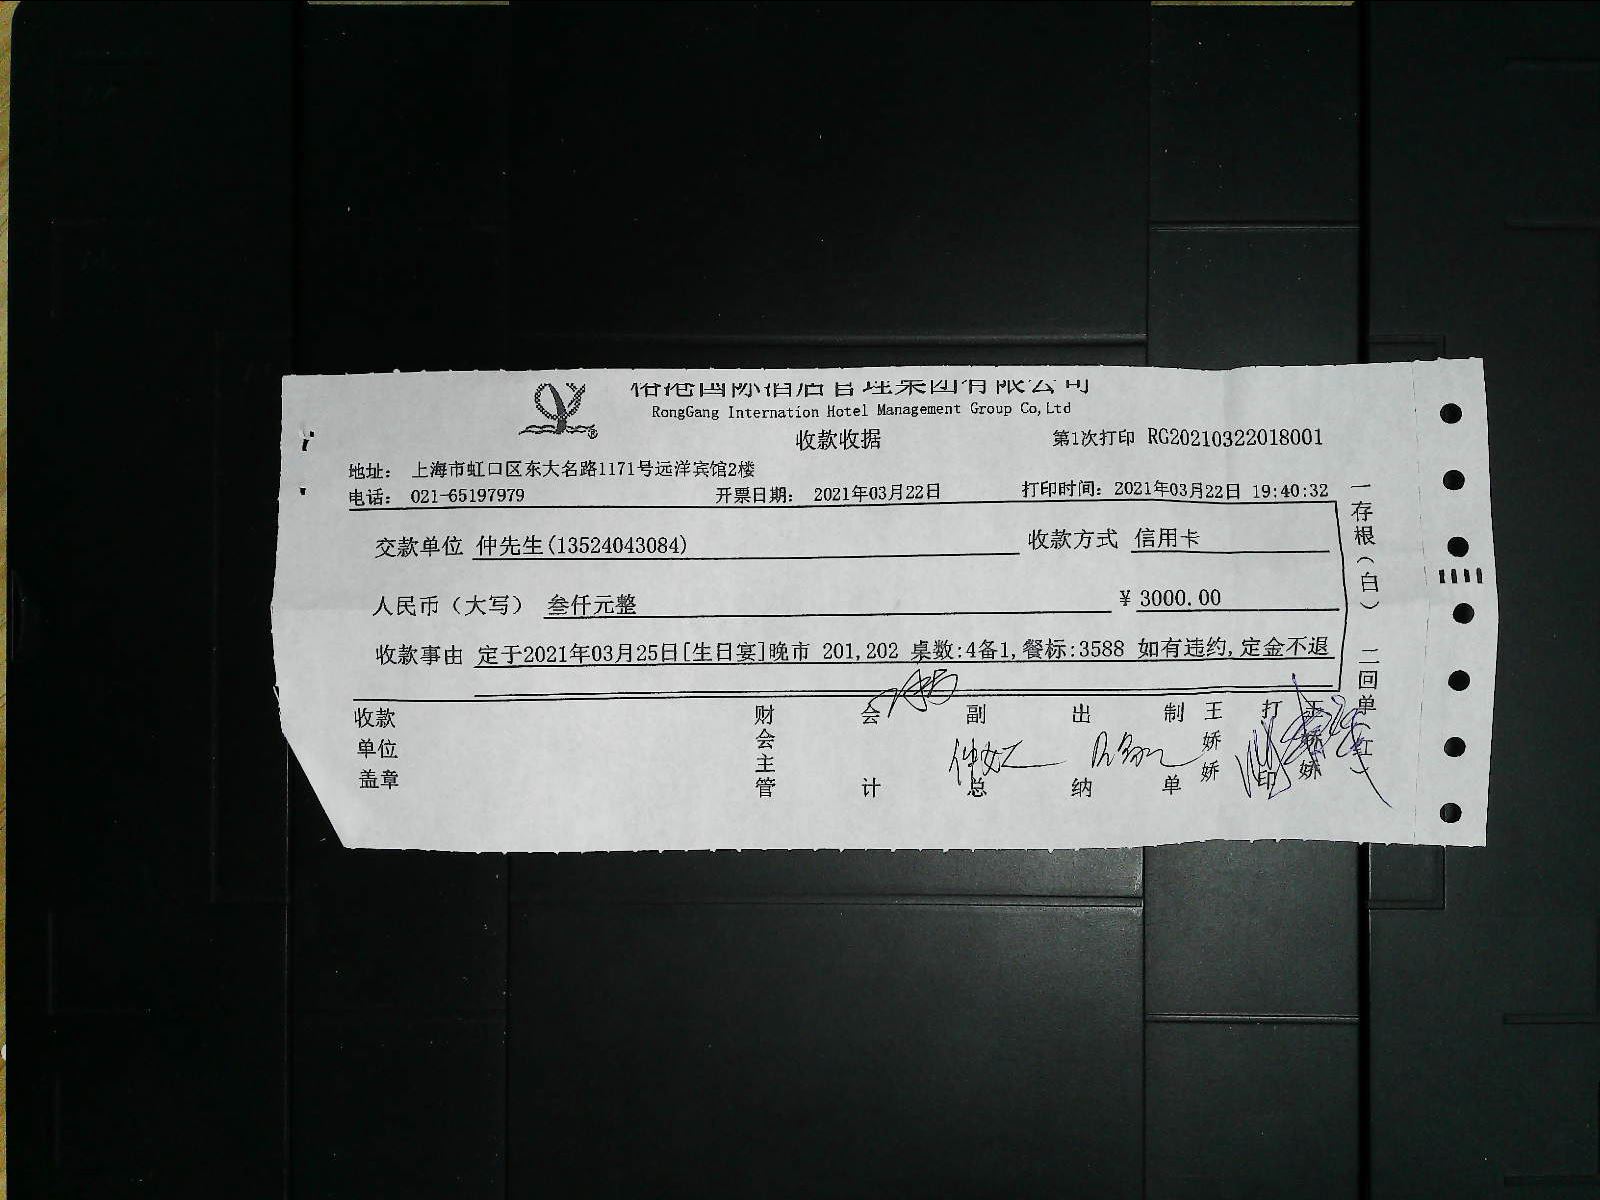 国际酒店管理集团有限公司
RongGang Internation Hotel Management Group Co,Ltd
收款收据
第1次打印 RG20210322018001
地址： 上海市虹口区东大名路1171号远洋宾馆2楼
电话： 021-65197979 开票日期： 2021年03月22日 打印时间：2021年03月22日 19:40:32
交款单位 仲先生(13524043084) 收款方式 信用卡
人民币（大写） 叁仟元整 ¥ 3000.00
收款事由 定于2021年03月25日[生日宴]晚市 201,202 桌数:4备1,餐标:3588 如有违约,定金不退
收款单位盖章
财会主管
会计
副总
出纳
制单
王娇娇
打印
王娇娇
一存根（白） 二回单（红）